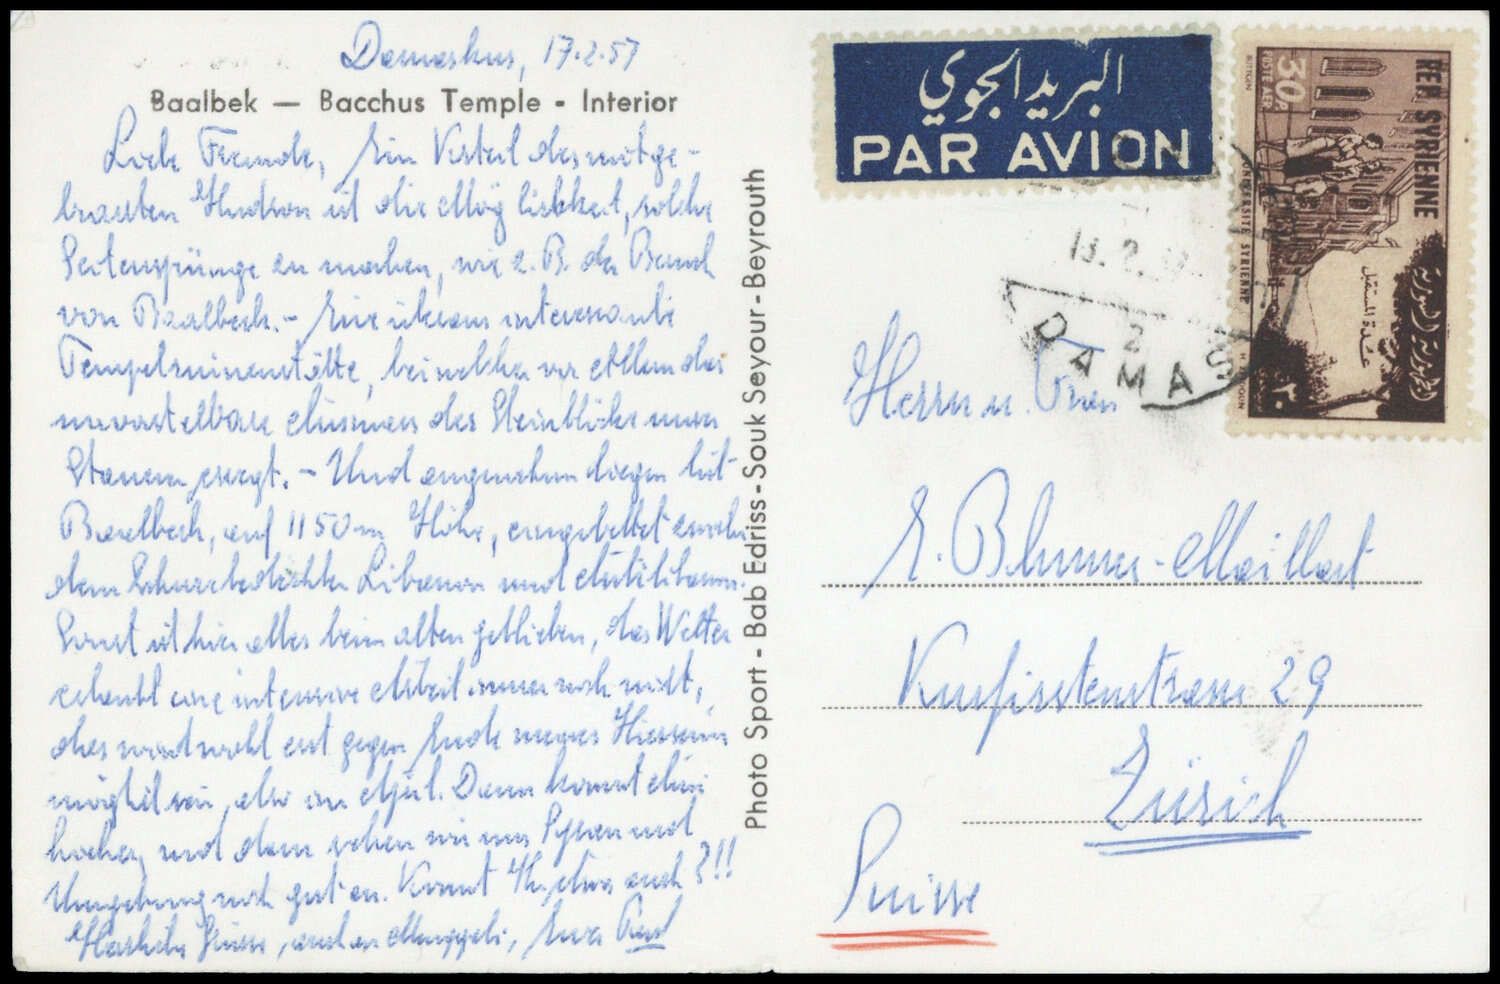 Damaskus, 17.2.57
Baalbek — Bacchus Temple - Interior
Liebe Freunde, Ein Vorteil des mitge-
brachten Hudson ist die Möglichkeit, solche
Seitensprünge zu machen, wie z. B. der Besuch
von Baalbeck. - Eine überaus interessante
Tempelruinenstätte, bei welcher vor Allem das
unvorstellbare der Steinblöcke unser
Staunen erregt. - Und angenehm liegen tut
Baalbeck, auf 1150 m Höhe, eingebettet zwischen
dem Schneebedeckten Libanon und Antilibanon.
Sonst ist hier alles beim alten geblieben, das Wetter
erlaubt eine intensive Arbeit immer noch nicht,
das wird wohl erst gegen Ende meines Hierseins
möglich sein, also im April. Dann kommt Aline
hieher, und dann sehen wir uns Syrien und
Umgebung noch gut an. Kommt Ihr etwa auch?!!
Herzliche Grüsse, auch an Meggeli, Euer Paul
Photo Sport - Bab Edriss - Souk Seyour - Beyrouth
البريد الجوي
PAR AVION
30P
POSTE AER.
REP. SYRIENNE
UNIVERSITE SYRIENNE
الجمهورية السورية
عدة المستقبل
٣٠
13.2.
2
DAMAS
Herrn u. Frau
E. Blumer-Maillart
Kurfirstenstrasse 29
Zürich
Suisse